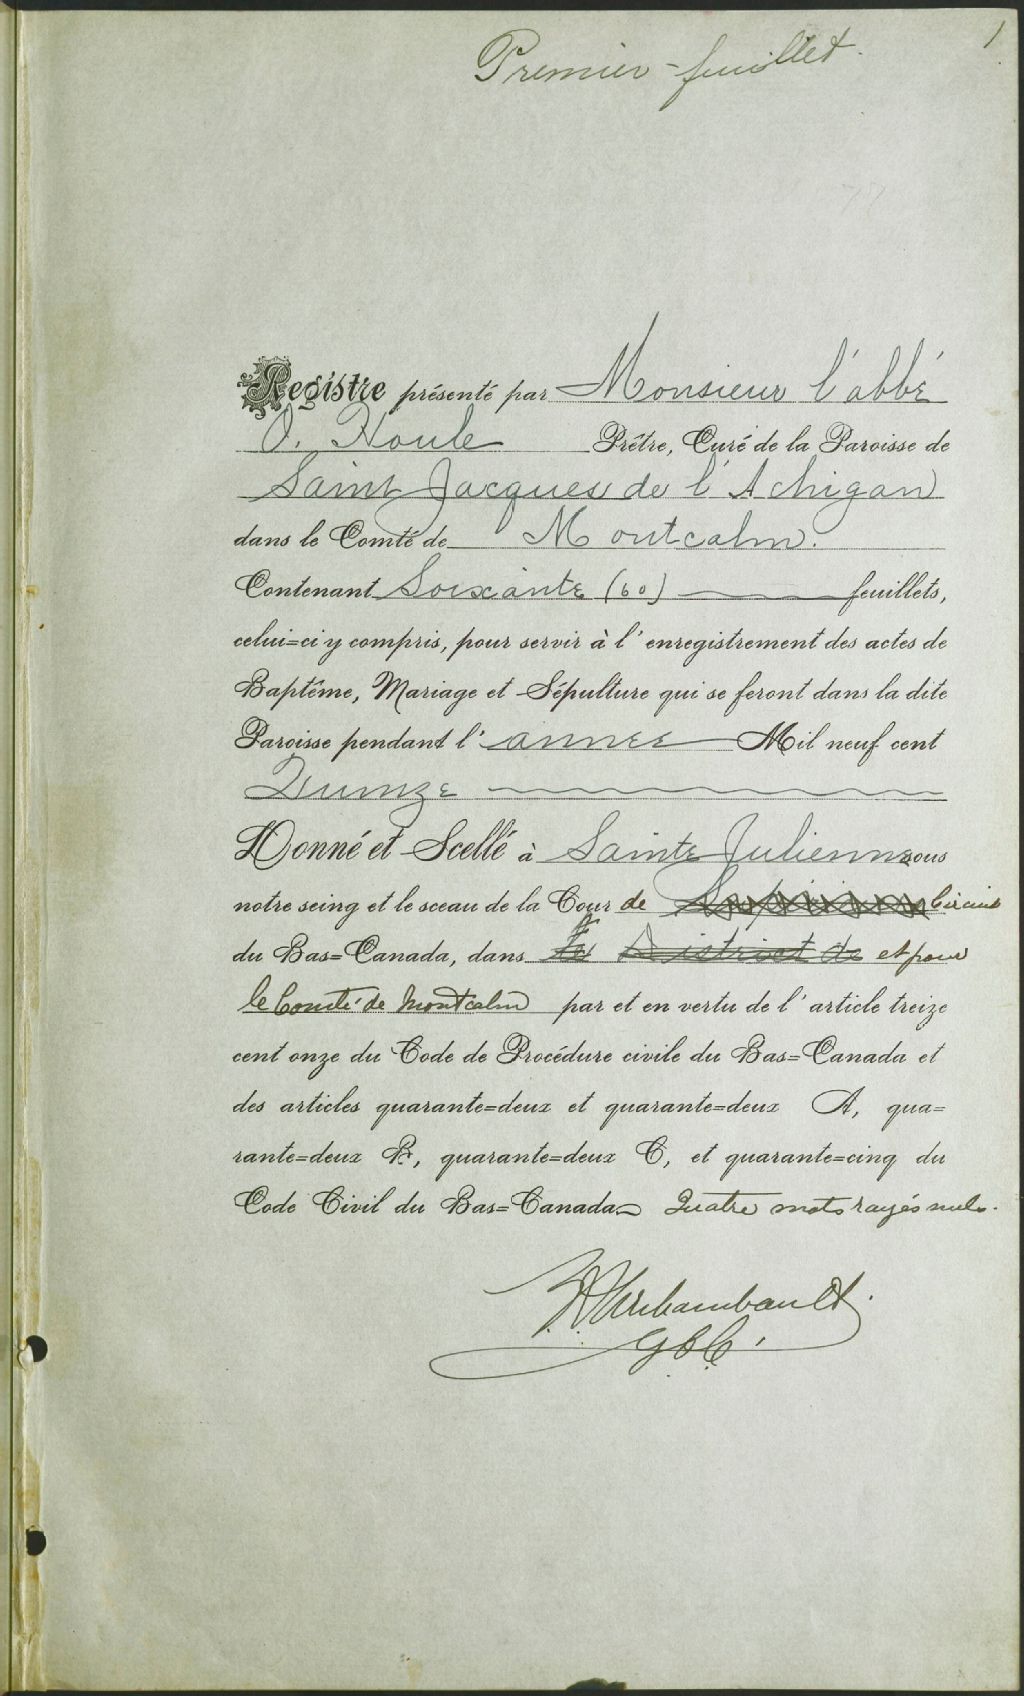 1
Premier feuillet.
Registre présenté par Monsieur l'abbé
O. Houle Prêtre, Curé de la Paroisse de
Saint Jacques de l'Achigan
dans le Comté de Montcalm.
Contenant Soixante (60) feuillets,
celui=ci y compris, pour servir à l'enregistrement des actes de
Baptême, Mariage et Sépulture qui se feront dans la dite
Paroisse pendant l'année Mil neuf cent
Quinze
Donné et Scellé à Sainte Julienne sous
notre seing et le sceau de la Cour de Supérieure Circuit
du Bas=Canada, dans le District de et pour
le Comté de Montcalm par et en vertu de l'article treize
cent onze du Code de Procédure civile du Bas=Canada et
des articles quarante=deux et quarante=deux A, qua=
rante=deux B, quarante=deux C, et quarante=cinq du
Code Civil du Bas=Canada Quatre mots rayés nuls.
Archambault
GCC.